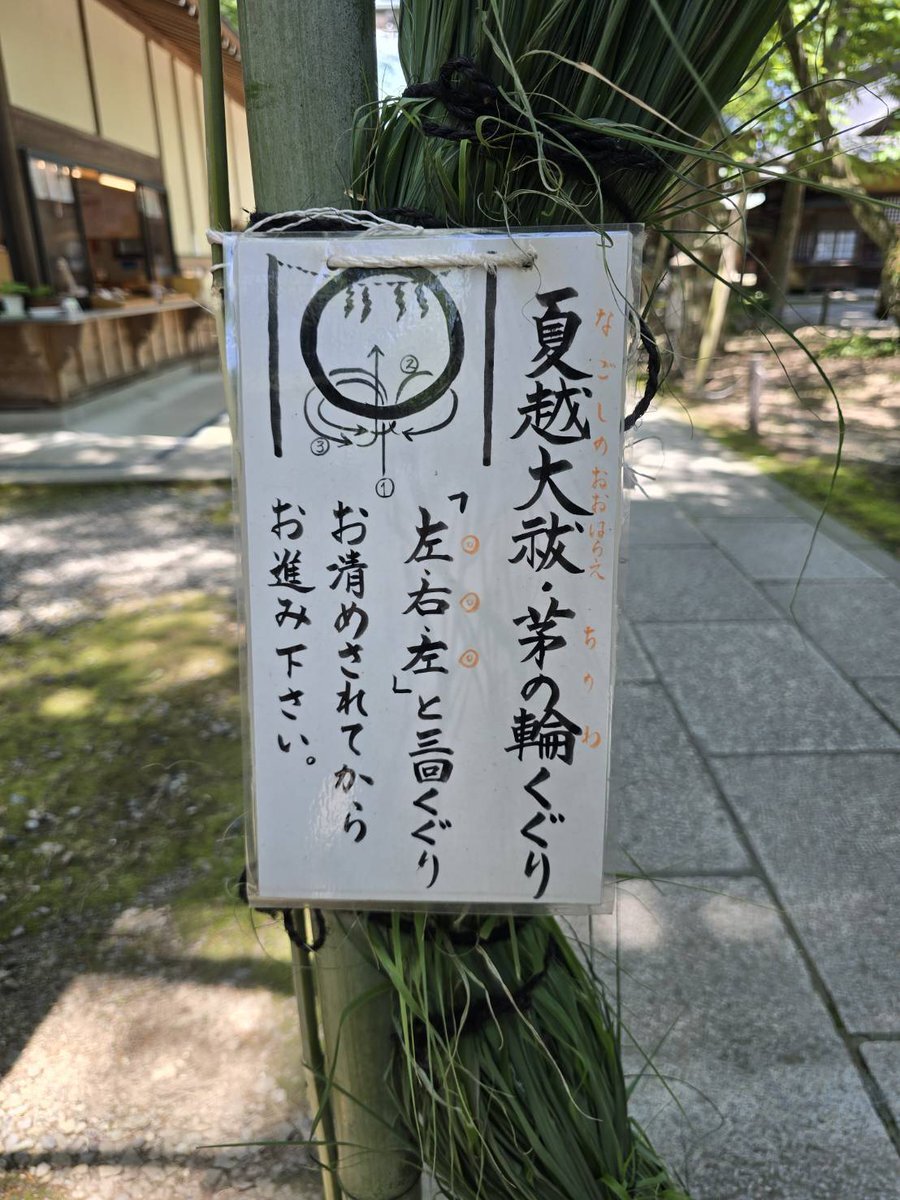 夏越大祓・茅の輪くぐり
なごしのおおはらえ ちのわ
「左・右・左」と三回くぐり
お清めされてから
お進み下さい。
①
②
③